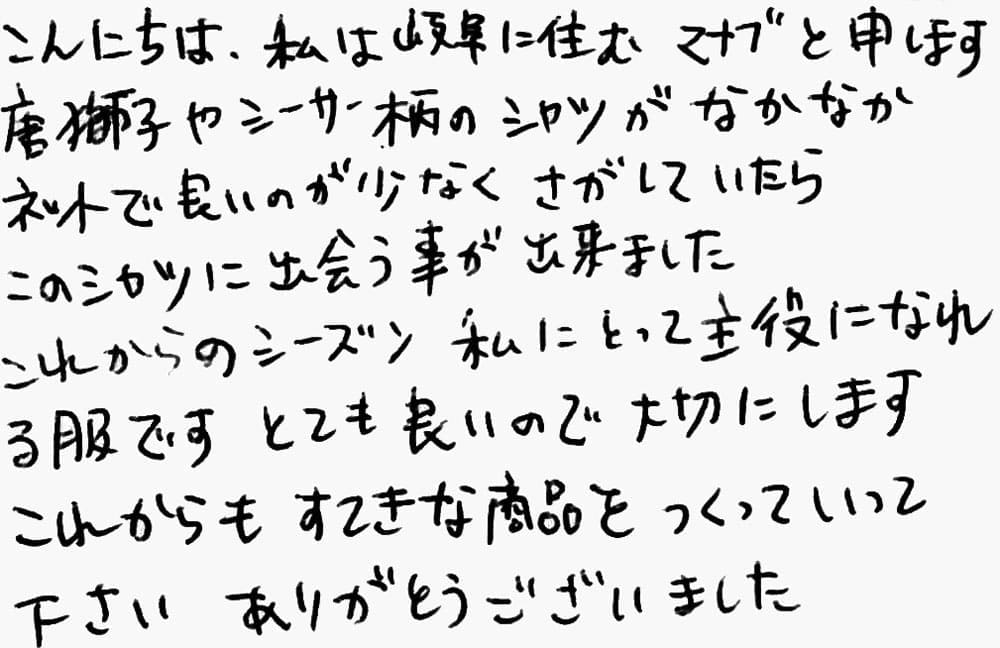 こんにちは、私は岐阜に住む マナブと申します
唐獅子やシーサー柄の シャツが なかなか
ネットで良いのが少なく さがしていたら
このシャツに出会う事が 出来ました
これからのシーズン 私にとって主役になれ
る服です とても良いので大切にします
これからも すてきな商品を つくっていって
下さい ありがとうございました